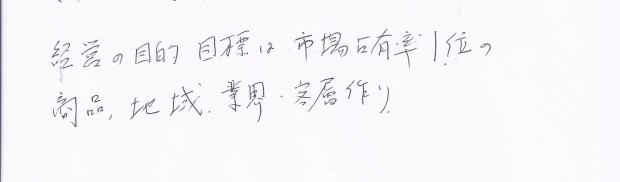 経営の目的 目標は 市場占有率1位の
商品, 地域. 業界・客層作り